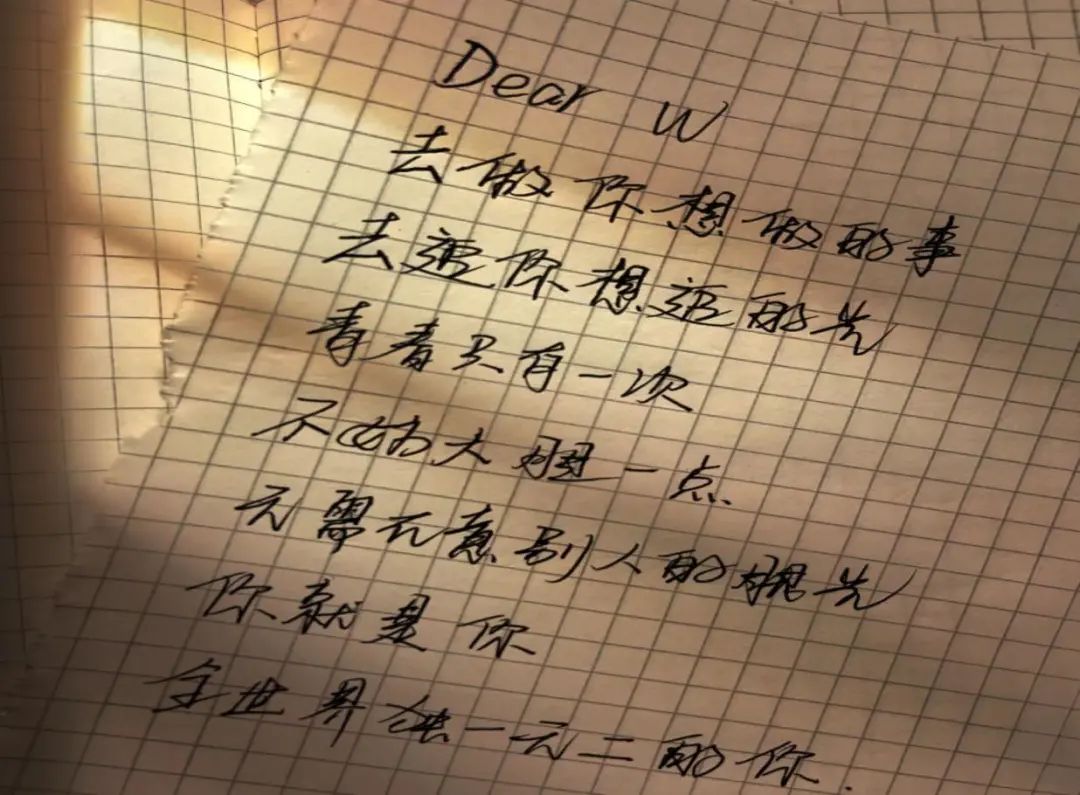 Dear W
去做你想做的事
去追你想追的光
青春只有一次
不妨大胆一点
无需在意别人的眼光
你就是你
全世界独一无二的你.